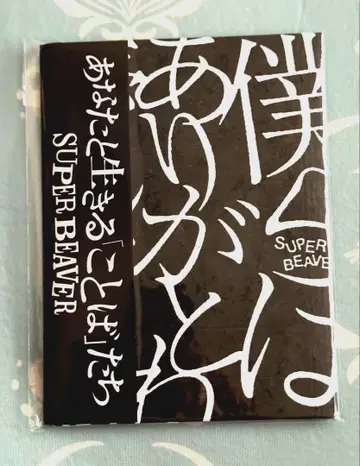 僕
ありがと
SUPER
BEAVE
あなたと生きる「ことば」たち
SUPER BEAVER